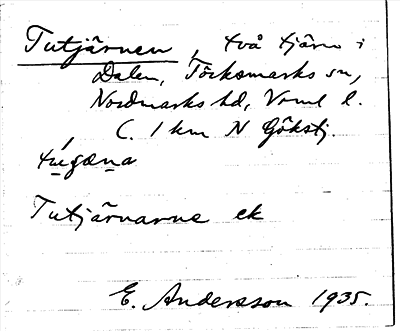 Tutjärnen, två tjärn i
Dalen, Töcksmarks sn,
Nordmarks hd, Vrml l.
C. 1 km N Gökstj.
Tutjärnarne ek
E. Andersson 1935.